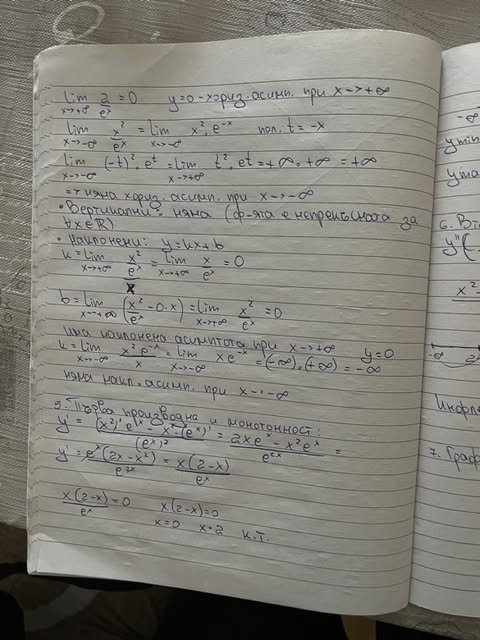 lim 2/eˣ = 0 y=0 - хориз. асимп. при x→+∞
x→+∞
lim x²/eˣ = lim x². e⁻ˣ пол. t = -x
x→-∞ x→-∞
lim (-t)². eᵗ = lim t². eᵗ = +∞. +∞ = +∞
x→-∞ x→+∞
=> няма хориз. асимп. при x→-∞
• Вертикални - няма (ф-ята е непрекъсната за
∀x∈ℝ)
• Наклонени: y=kx+b
k = lim x²/eˣ/x = lim x/eˣ = 0
x→+∞ x→+∞
b = lim (x²/eˣ - 0.x) = lim x²/eˣ = 0
x→+∞ x→+∞
има наклонена асимптота при x→+∞ y=0
k = lim x² e⁻ˣ/x = lim x e⁻ˣ = (-∞).(+∞) = -∞
x→-∞ x→-∞
няма накл. асимп. при x→-∞
5. Първа производна и монотонност:
y' = (x²)' eˣ - x² (eˣ)'/(eˣ)² = 2xeˣ - x²eˣ/e²ˣ =
y' = eˣ(2x-x²)/e²ˣ = x(2-x)/eˣ
x(2-x)/eˣ = 0 x(2-x)=0
x=0 x=2 к.т.
-∞
y min
y ma
6. В
y''(
x²-
-∞
Инфле
7. Граф